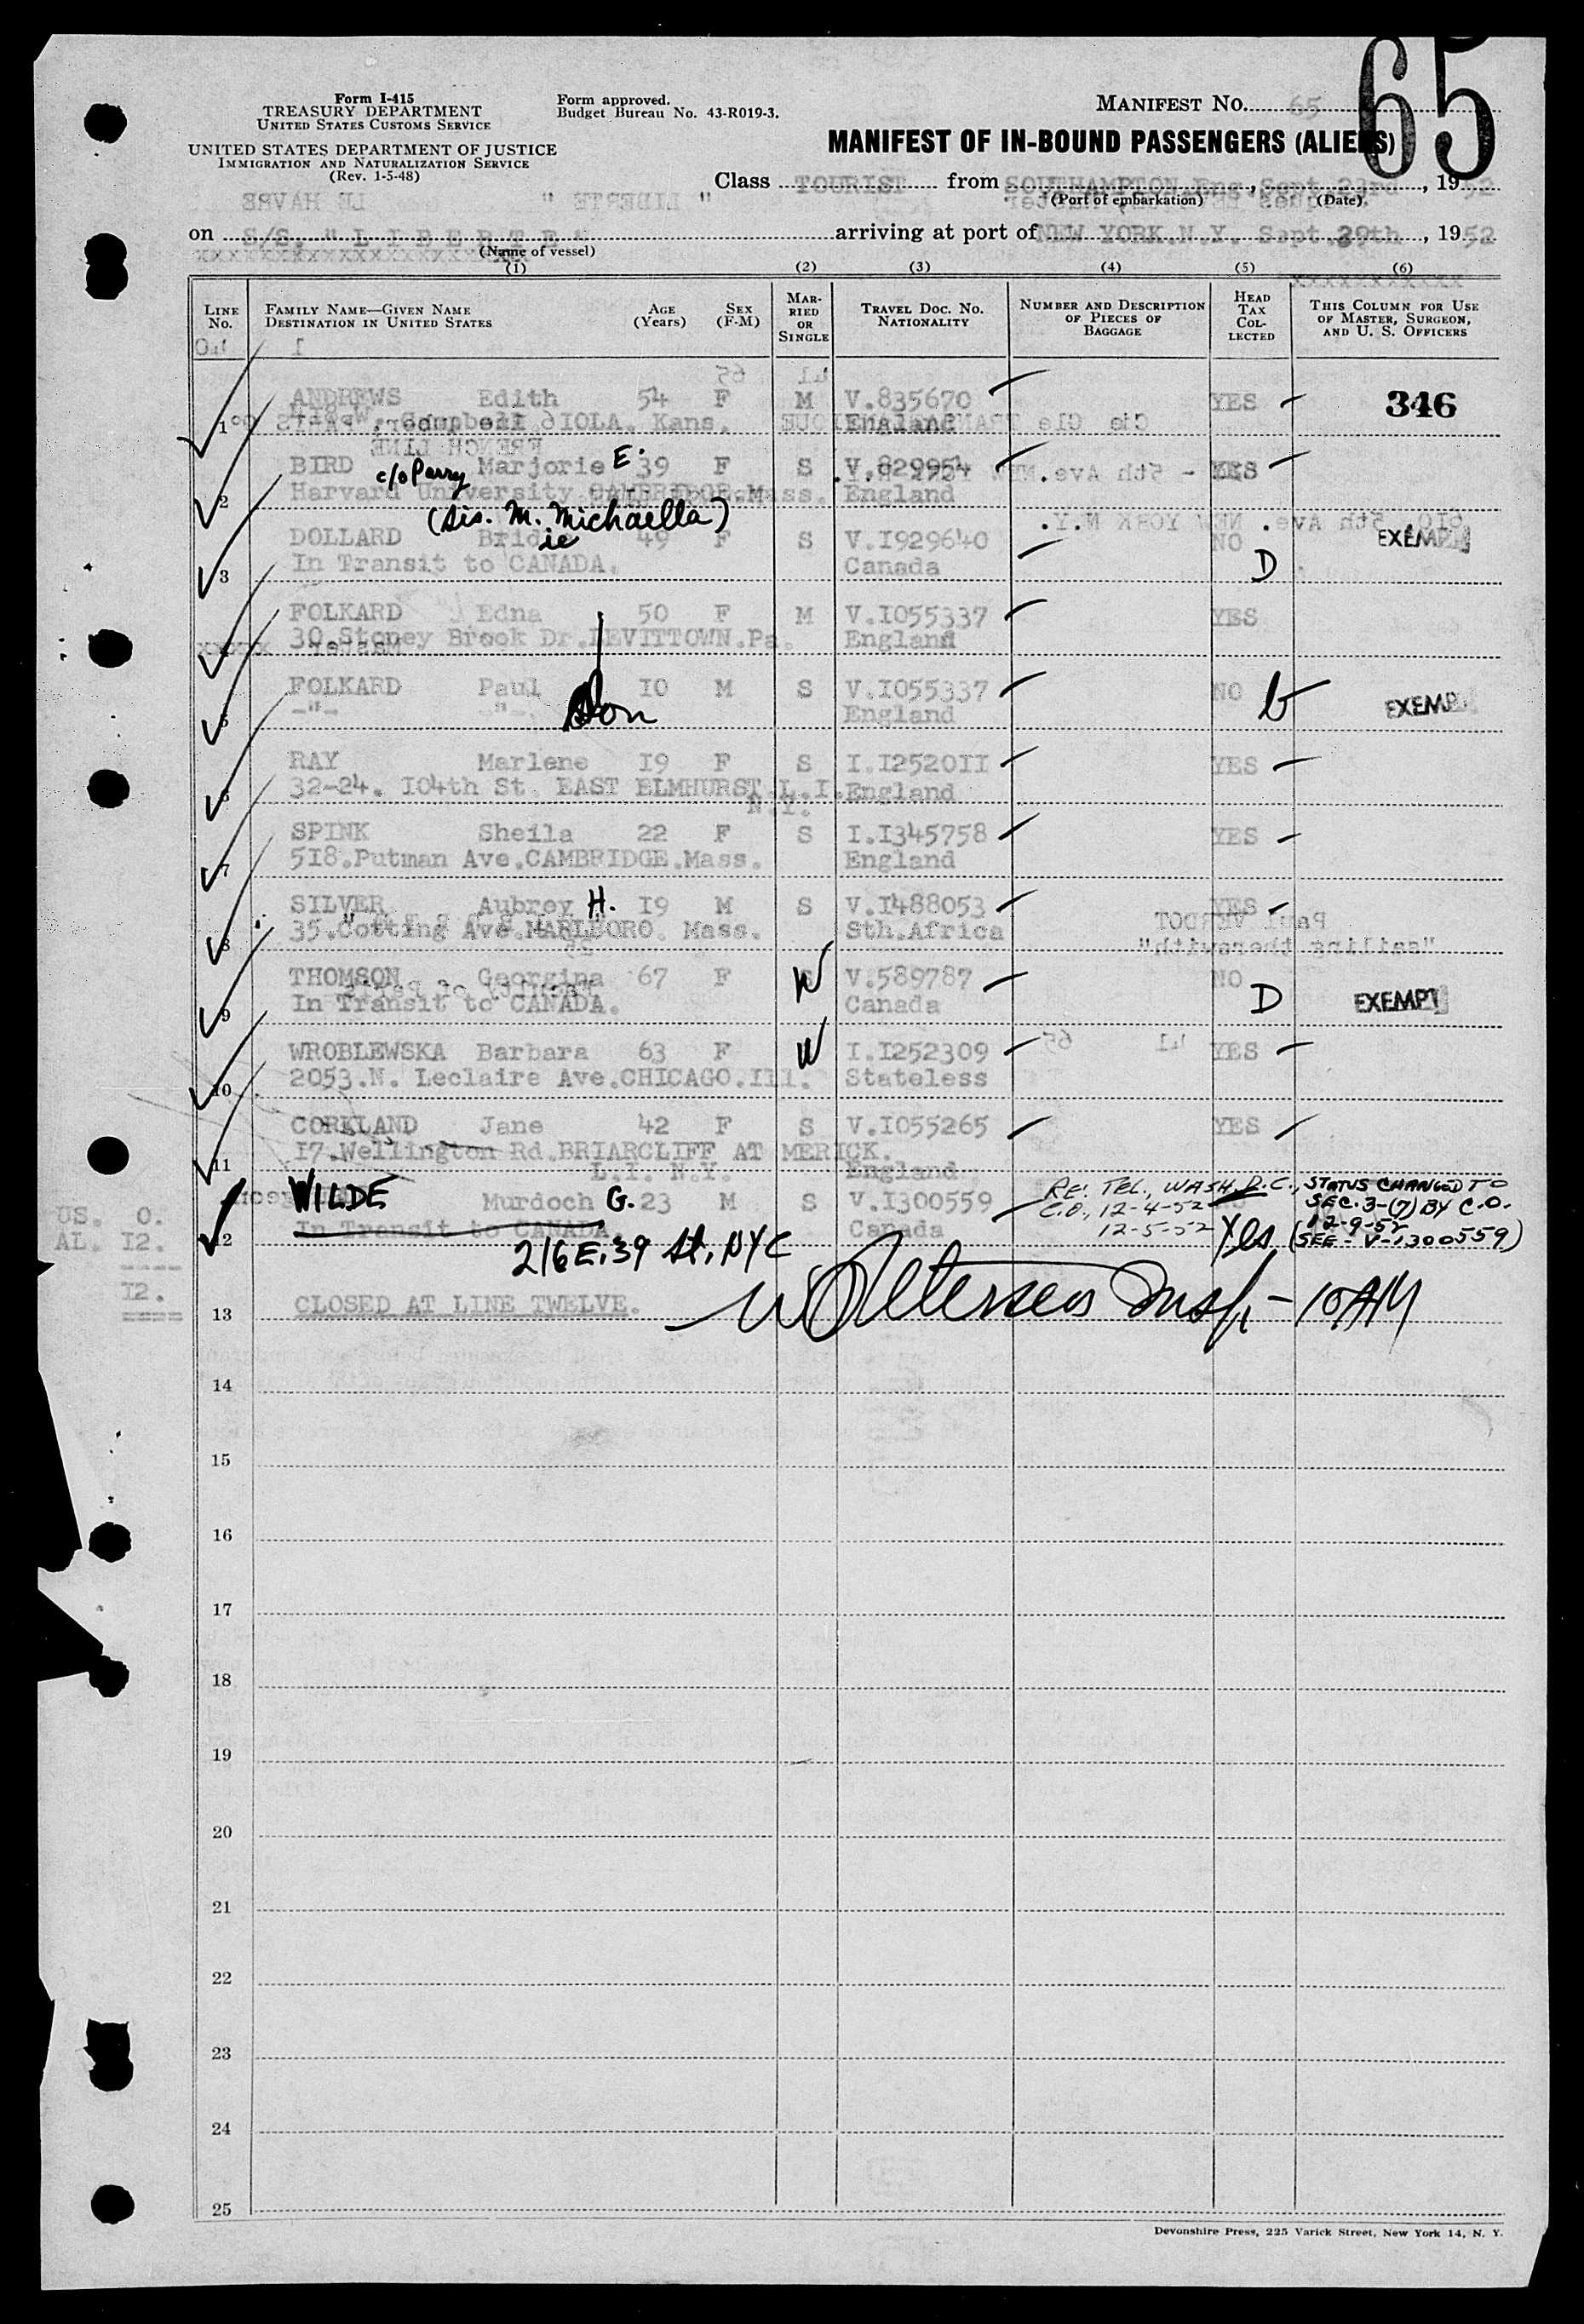 65
Form I-415
TREASURY DEPARTMENT
UNITED STATES CUSTOMS SERVICE
UNITED STATES DEPARTMENT OF JUSTICE
IMMIGRATION AND NATURALIZATION SERVICE
(Rev. 1-5-48)
Form approved.
Budget Bureau No. 43-R019-3.
MANIFEST No. 65
MANIFEST OF IN-BOUND PASSENGERS (ALIENS)
Class TOURIST from SOUTHAMPTON.Eng., Sept.23rd, 1952
(Port of embarkation) (Date)
on S/S. "L I B E R T E" arriving at port of NEW YORK.N.Y. Sept.29th, 1952
(Name of vessel)
(1) (2) (3) (4) (5) (6)
LINE No. FAMILY NAME—GIVEN NAME DESTINATION IN UNITED STATES AGE (Years) SEX (F-M) MARRIED OR SINGLE TRAVEL DOC. No. NATIONALITY NUMBER AND DESCRIPTION OF PIECES OF BAGGAGE HEAD TAX COLLECTED THIS COLUMN FOR USE OF MASTER, SURGEON, AND U. S. OFFICERS
ANDREWS Edith 54 F M V.835670 YES 346
1 Campbell IOLA. Kans. England
BIRD Marjorie E. 39 F S V.829951 YES
c/o Parry
2 Harvard University CAMBRIDGE.Mass. England
(Sis. M. Michaella)
DOLLARD Bridie 49 F S V.I929640 NO EXEMPT
ie
3 In Transit to CANADA. Canada D
FOLKARD Edna 50 F M V.I055337 YES
4 30.Stoney Brook Dr.LEVITTOWN.Pa. England
FOLKARD Paul 10 M S V.I055337 NO b EXEMPT
5 -"- -"- Son England
RAY Marlene 19 F S I.I2520II YES
6 32-24. 104th St. EAST ELMHURST.L.I. England
N.Y.
SPINK Sheila 22 F S I.I345758 YES
7 518.Putman Ave.CAMBRIDGE.Mass. England
SILVER Aubrey H. 19 M S V.I488053 YES
8 35.Cotting Ave.MARLBORO. Mass. Sth.Africa
THOMSON Georgina 67 F W V.589787 NO
9 In Transit to CANADA. Canada D EXEMPT
WROBLEWSKA Barbara 63 F W I.I252309 YES
10 2053.N. Leclaire Ave.CHICAGO.Ill. Stateless
CORKLAND Jane 42 F S V.I055265 YES
11 17.Wellington Rd.BRIARCLIFF AT MERICK.
L.I. N.Y. England
WILDE Murdoch G. 23 M S V.I300559 RE: TEL., WASH. D.C., STATUS CHANGED TO
C.O., 12-4-52 SEC. 3-(7) BY C.O.
12 In Transit to CANADA. Canada 12-5-52 Yes 12-9-52
216 E. 39 St, NYC (SEE - V-1300559)
US. 0.
AL. I2.
----
I2.
====
13 CLOSED AT LINE TWELVE. Insp. - 10 AM
14
15
16
17
18
19
20
21
22
23
24
25
Devonshire Press, 225 Varick Street, New York 14, N. Y.